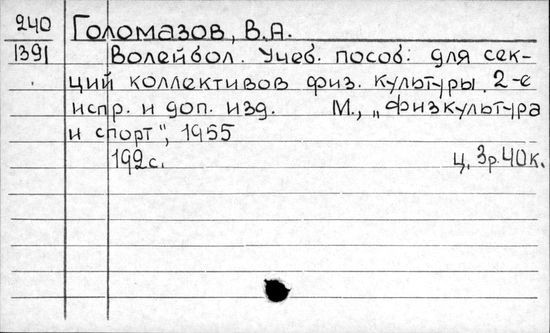 240 Голомазов, В.А.
1391 Волейбол. Учеб. пособ: для сек-
ций коллективов физ. культуры. 2-е
испр. и доп. изд. М., „Физкультура
и спорт", 1955
192 с. ц. 3р. 40к.